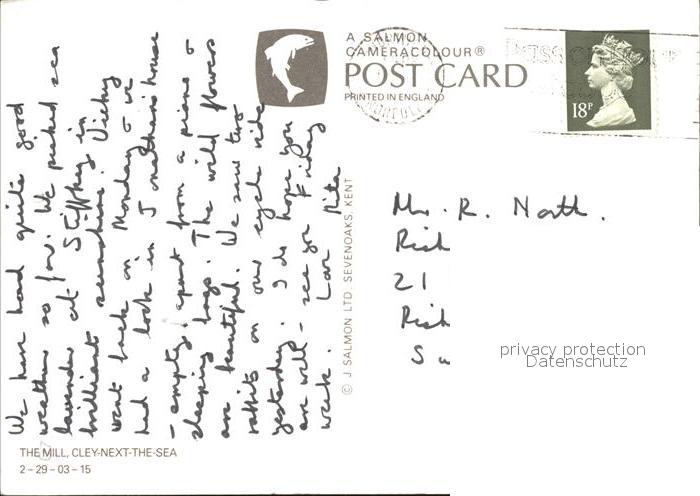 A SALMON
CAMERACOLOUR®
POST CARD
PRINTED IN ENGLAND
NORFOLK
18P
We have had quite good
weather so far. We picked sea
lavender at Stiffkey in
brilliant sunshine. Vicky
went back on Monday & we
had a look in Jonathan's house
- empty! apart from a piano &
sleeping bags. The wild flowers
are beautiful. We saw two
rabbits on our cycle ride
yesterday. I do hope you
are well - see you Friday
week. Love Rita
© J. SALMON LTD. SEVENOAKS, KENT
Mr. R. North.
Rich
21
Rich
privacy protection
Datenschutz
THE MILL, CLEY-NEXT-THE-SEA
2-29-03-15